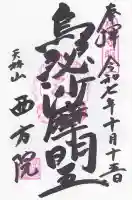 奉拝 令和七年十月十二日
烏芻沙摩明王
天龍山
西方院